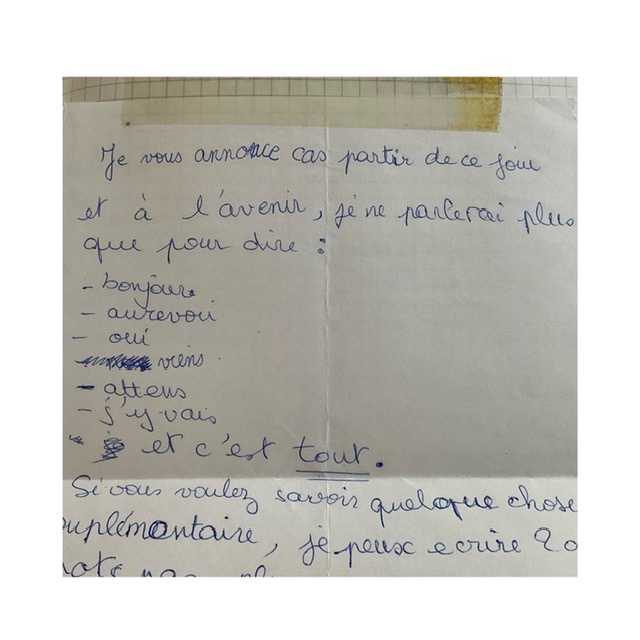 Je vous annonce cas partir de ce jour
et à l'avenir, je ne parlerai plus
que pour dire :
- bonjour
- aurevoir
- oui
viens
- attens
- j'y vais
et c'est tout.
Si vous voulez savoir quelque chose
suplémentaire, je peux ecrire 20
mots pas pl